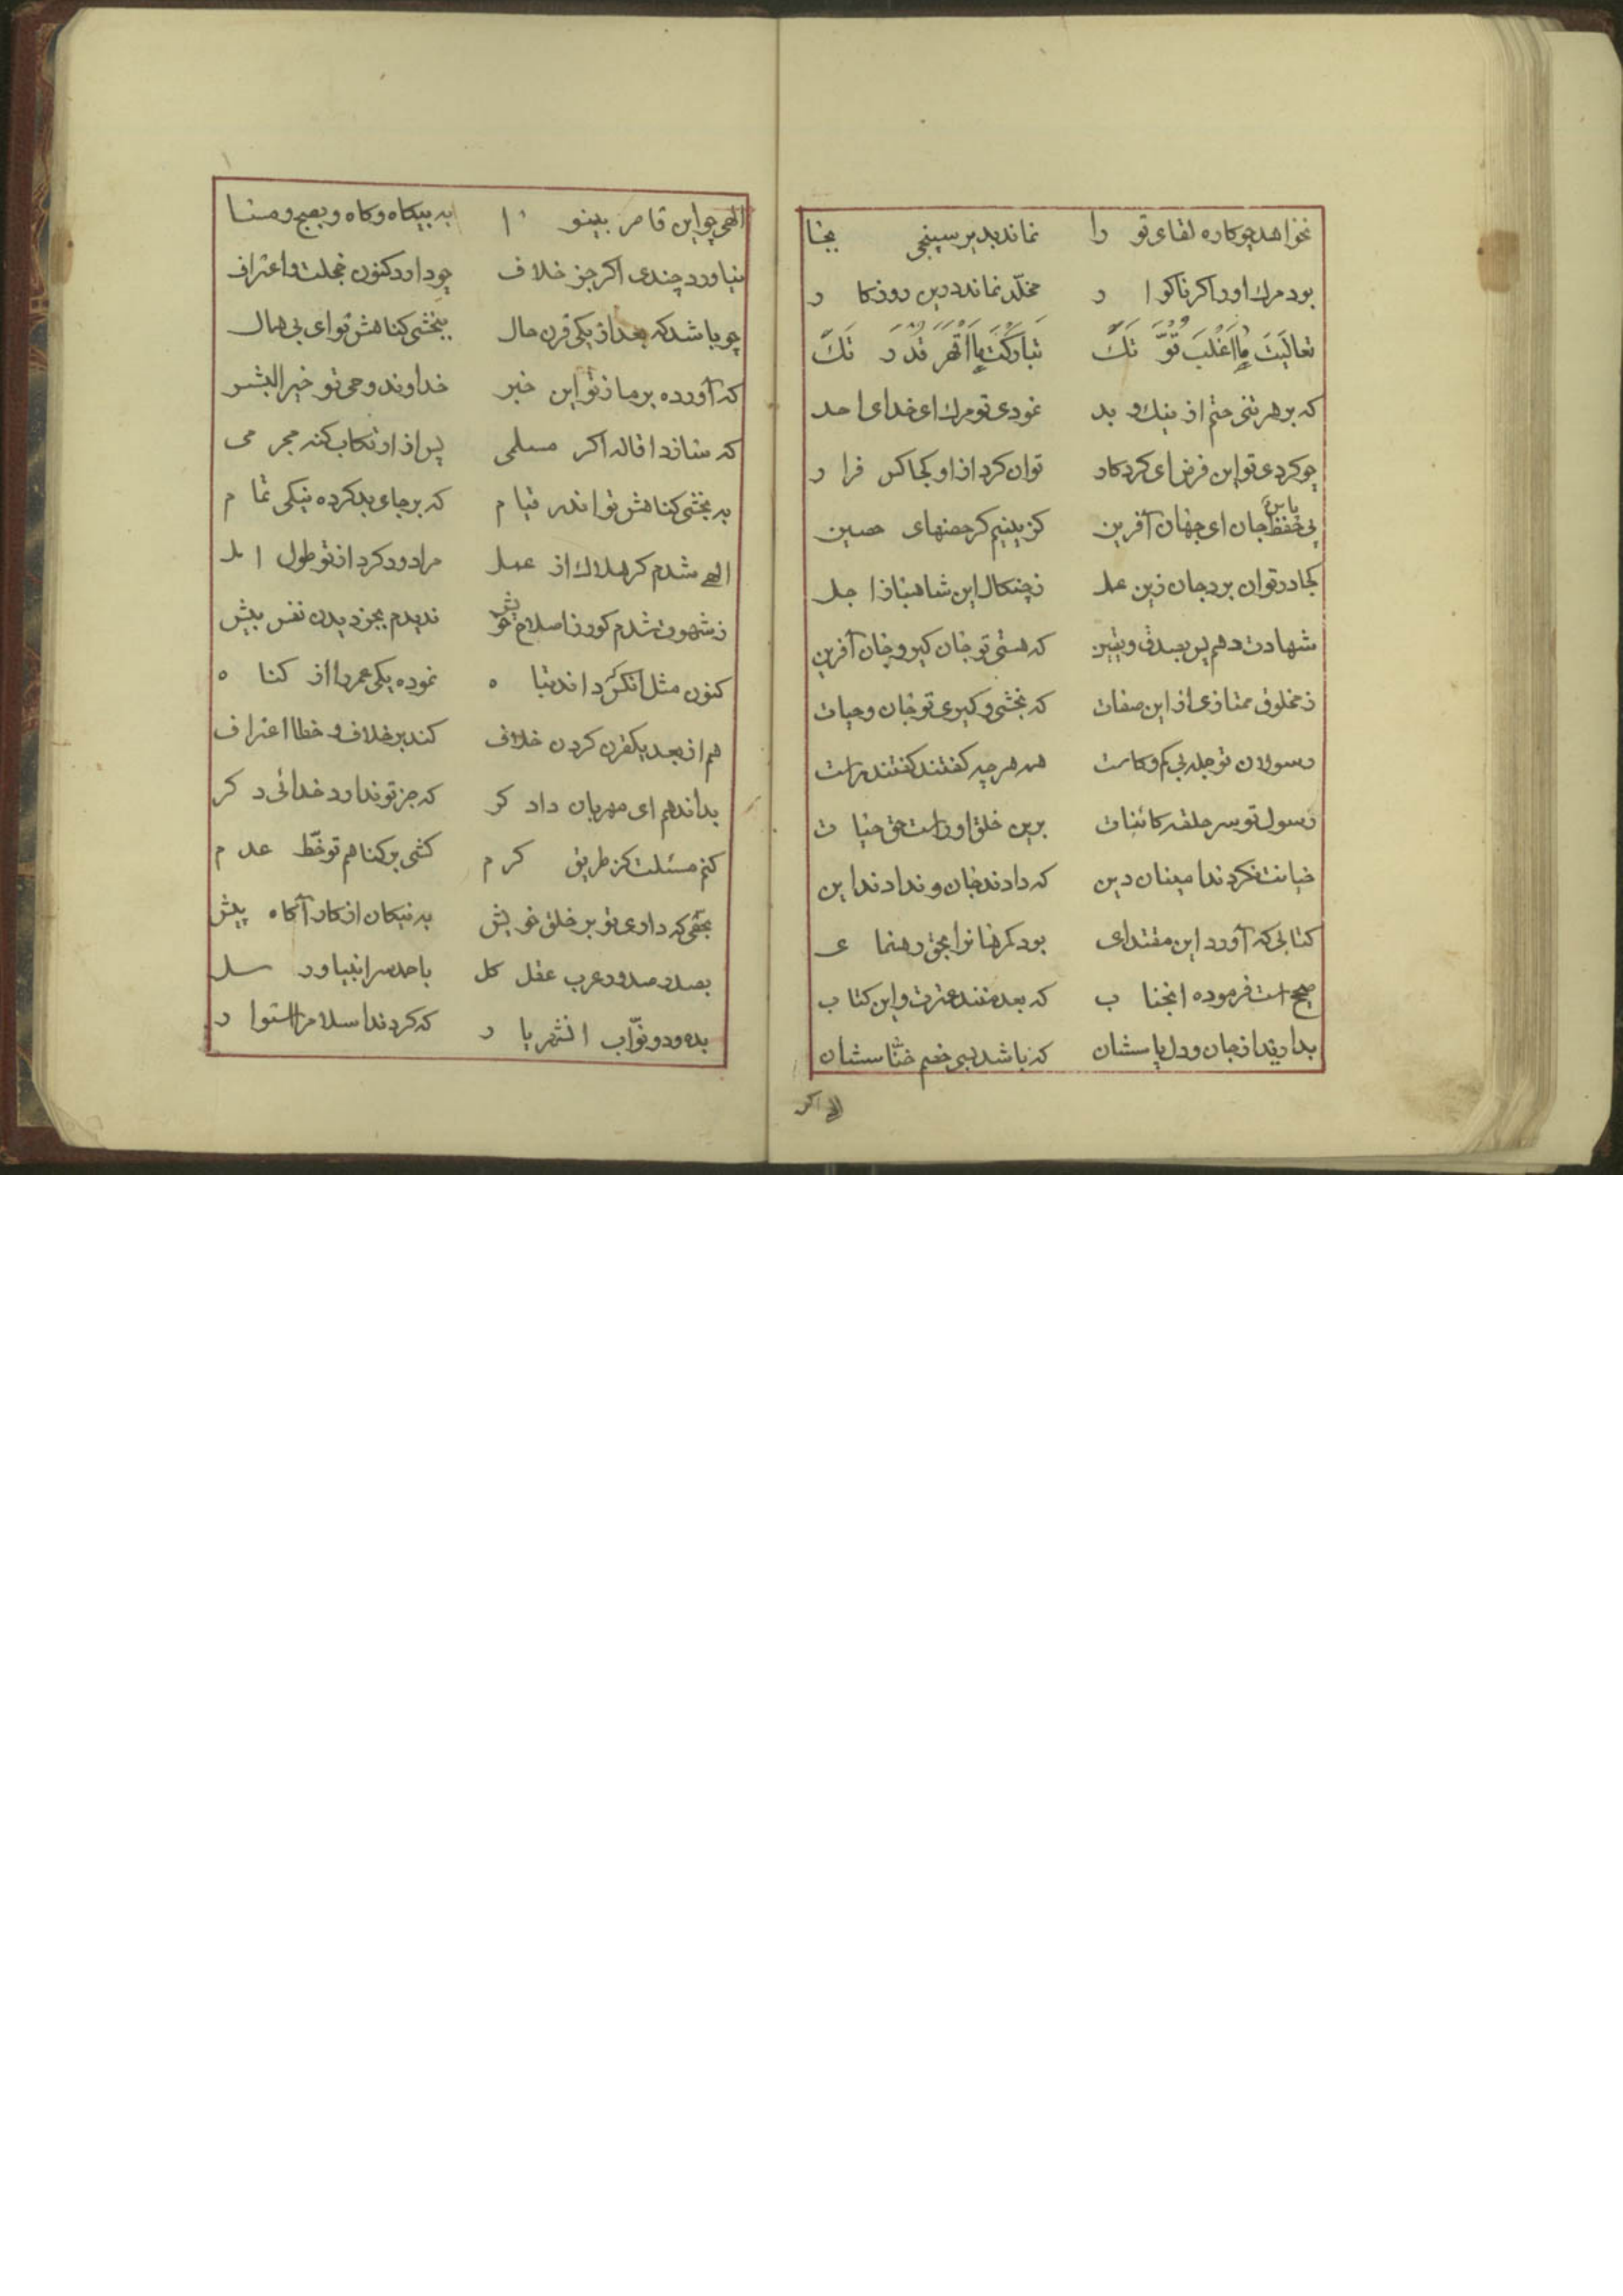 نخواهد چو کاره لقای تو را نماند بدیر سپنجی بجا
بود مرك او را كر ناكوار مخلّد نماند درین روزکار
تعالَیتَ ما اَغلَبَ قُوَّتَكَ تبارکتَ ما اَقهَرَ قُدرَتَكَ
که بر هر تنی حتم از نیك و بد نمودی تو مرك ای خدای احد
چو کردی تو این فرض ای کردکار توان کرد از او کجا کس فرار
پی حفظ جان ای جهان آفرین کزینیم کر حصنهای حصین
کجا در توان برد جان زین عمل ز چنکال این شاهباز اجل
شهادت دهم پس بصدق و یقین که هستی تو جان کیر و جان آفرین
ز مخلوق ممتازی از این صفات که بخشی و کیری تو جان و حیات
رسولان تو جمله بی کم و کاست همه هرچه کفتند کفتند راست
رسول تو سر حلقه کائنات برین خلق او راست حق حیات
خیانت نکردند امینان دین که دادند جان و ندادند این
کتابی که آورد این مقتدای بود کمرهانرا بحق رهنمای
صحیح است فرموده انجناب که بعد منند عترت و این کتاب
بدارید از جان و دل پاسشان که باشد بسی خصم خنّاسشان
الهی چو این قاصر بینوا به بیکاه و کاه و بصبح و مسا
نیاورد چندی اکر جز خلاف چو دارد کنون خجلت و اعتراف
چو باشد که بعد از یکی قرن حال ببخشی کناهش تو ای بی همال
که آورده بر ما ز تو این خبر خداوند وحی تو خیر البشر
که سازد اقاله اکر مسلمی پس از ارتکاب کنه مجرمی
به بخشی کناهش تو اندر قیام که بر جای بد کرده نیکی تمام
الهی شدم کر هلاك از عمل مرا دور کرد از تو طول امل
ز شهوت شدم کور ز اصلاح خویش ندیدم بجز دیدن نفس پیش
کنون مثل انکس که در اندتباه نموده یکی عمر را از کناه
هم از بعد یکقرن کردن خلاف کند بر خلاف و خطا اعتراف
بداند هم ای مهربان دادکر که جز تو ندارد خدائی دکر
کنم مسئلت کز طریق کرم کشی بر کناهم تو خطّ عدم
بحقی که داری تو بر خلق خویش به نیکان از کار آکاه پیش
بصدر صدور عرب عقل کل باحمد سر انبیا و رسل
بده و دو نوّاب انشهریار که کردند اسلام را استوار